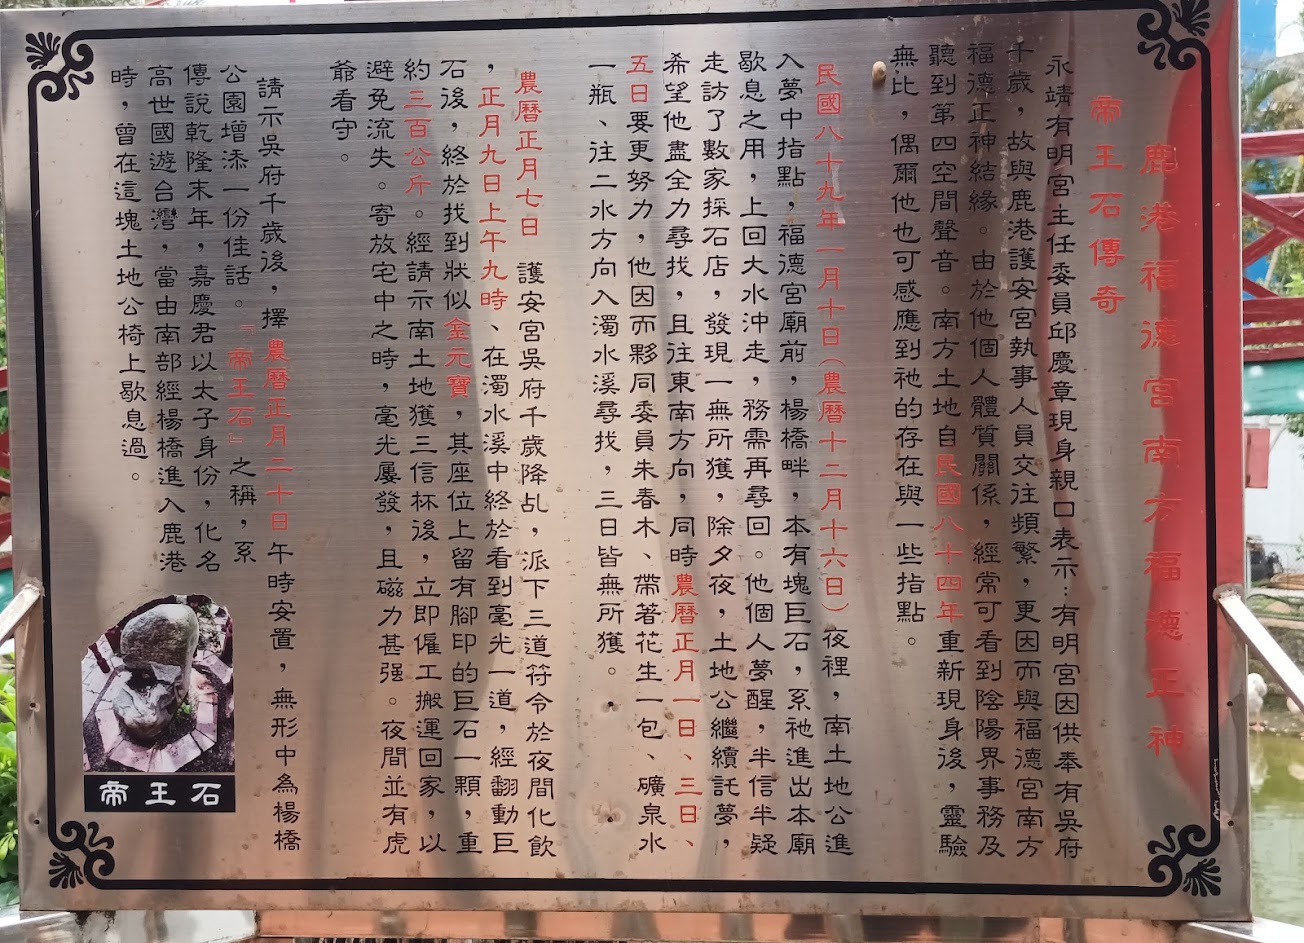 鹿港福德宮南方福德正神
帝王石傳奇
永靖有明宮主任委員邱慶章現身親口表示:有明宮因供奉有吳府
千歲，故與鹿港護安宮執事人員交往頻繁，更因而與福德宮南方
福德正神結緣。由於他個人體質關係，經常可看到陰陽界事務及
聽到第四空間聲音。南方土地自民國八十四年重新現身後，靈驗
無比，偶爾他也可感應到祂的存在與一些指點。
民國八十九年一月十日（農曆十二月十六日）夜裡，南土地公進
入夢中指點，福德宮廟前，楊橋畔，本有塊巨石，系祂進出本廟
歇息之用，上回大水沖走，務需再尋回。他個人夢醒，半信半疑
走訪了數家採石店，發現一無所獲，除夕夜，土地公繼續託夢，
希望他盡全力尋找，且往東南方向，同時農曆正月一日、三日、
五日要更努力，他因而夥同委員朱春木、帶著花生一包、礦泉水
一瓶、往二水方向入濁水溪尋找，三日皆無所獲。
農曆正月七日　護安宮吳府千歲降乩，派下三道符令於夜間化飲
，正月九日上午九時、在濁水溪中終於看到毫光一道，經翻動巨
石後，終於找到狀似金元寶，其座位上留有腳印的巨石一顆，重
約三百公斤。經請示南土地獲三信杯後，立即僱工搬運回家，以
避免流失。寄放宅中之時，毫光屢發，且磁力甚强。夜間並有虎
爺看守。
請示吳府千歲後，擇農曆正月二十日午時安置，無形中為楊橋
公園增添一份佳話。『帝王石』之稱，系
傳說乾隆末年，嘉慶君以太子身份，化名
高世國遊台灣，當由南部經楊橋進入鹿港
時，曾在這塊土地公椅上歇息過。
帝王石